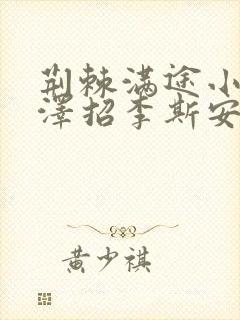 荆棘满途小
澤招李斯安
黄少祺